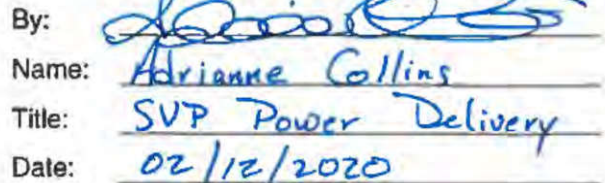 By:
Name: Adrianne Collins
Title: SVP Power Delivery
Date: 02/12/2020